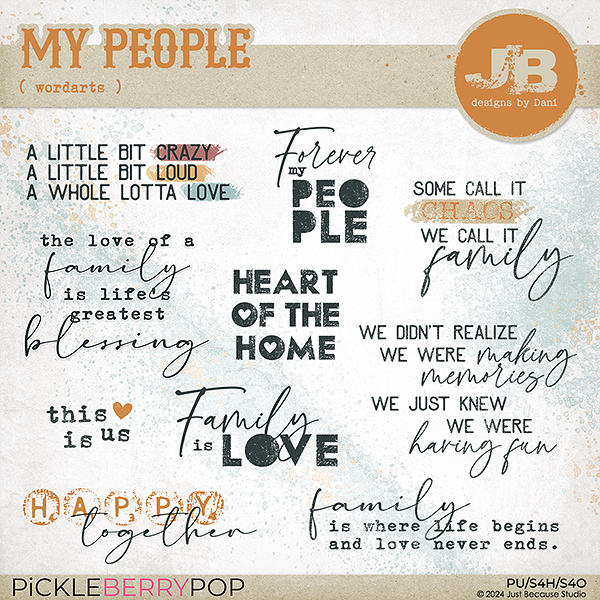 MY PEOPLE
( wordarts )
JB
designs by Dani
A LITTLE BIT CRAZY
A LITTLE BIT LOUD
A WHOLE LOTTA LOVE
Forever
my
PEO
PLE
SOME CALL IT
CHAOS
WE CALL IT
family
the love of a
family
is life's
greatest
blessing
HEART
OF THE
HOME
WE DIDN'T REALIZE
WE WERE making
memories
WE JUST KNEW
WE WERE
having fun
this
is us
Family
is LOVE
HAPPY
together
family
is where life begins
and love never ends.
PiCKLEBERRYPOP
PU/S4H/S4O
©2024 Just Because Studio